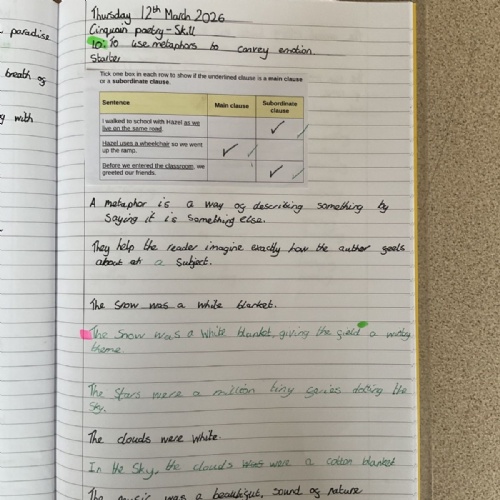 paradise
breath of
g with
Thursday 12th March 2026
Cinquain poetry - Skill
LO: To use metaphors to convey emotion.
Starter
Tick one box in each row to show if the underlined clause is a main clause
or a subordinate clause.
Sentence Main clause Subordinate clause
I walked to school with Hazel as we
live on the same road.
Hazel uses a wheelchair so we went
up the ramp.
Before we entered the classroom, we
greeted our friends.
A metaphor is a way of describing something by
saying it is something else.
They help the reader imagine exactly how the author feels
about a subject.
The snow was a white blanket.
The snow was a white blanket, giving the field a
theme
The stars were a million tiny dotting the
sky.
The clouds were white.
In the sky, the clouds were a cotton blanket
The music was a beautiful, sound of nature